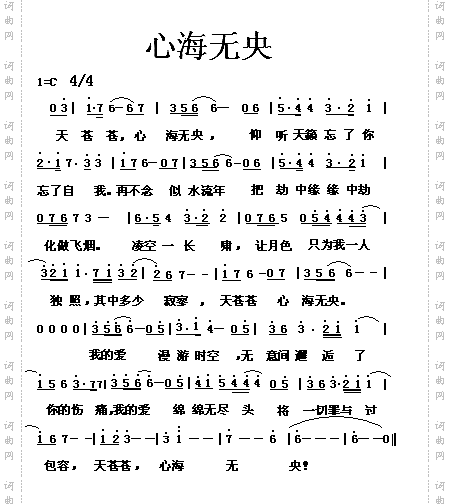 心海无央
1=C 4/4
03| 1·7 6-67 | 356 6- 06 |5·44 3·2 1 |
天 苍苍，心 海无央， 仰 听天籁 忘了你
2·17·33 |176-07|3566-06 |5·44 3·2 1|
忘了自 我。再不念 似 水流年 把 劫中缘 缘中劫
07673- -|6·54 3·22 |0765 054443|
化做飞烟。 凌空一长 啸，让月色 只为我一人
3211·7132|267--|176-07|3566--|
独照，其中多少 寂寥，天苍苍 心 海无央。
0000|3566-05|3·14-05|363·211|
我的爱 漫游时空，无 意间邂 逅 了
1563·77|3566-05|4154445|363·211|
你的伤 痛，我的爱 绵 绵无尽 头 将 一切罪与 过
167--|123--|31--|7--6|6---|6--0‖
包容， 天苍苍， 心海 无 央！
词曲网
词曲网